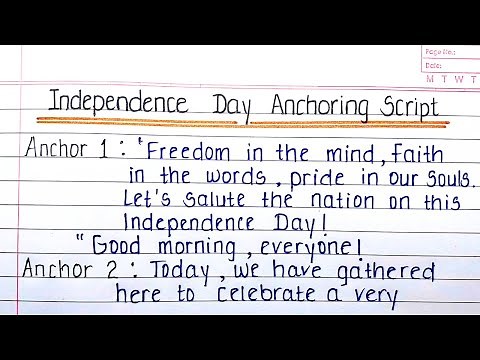 Page No.:
Date:
M T W T
Independence Day Anchoring Script
Anchor 1 : "Freedom in the mind, faith
in the words, pride in our souls.
Let's salute the nation on this
Independence Day!
"Good morning, everyone!
Anchor 2 : Today, we have gathered
here to celebrate a very